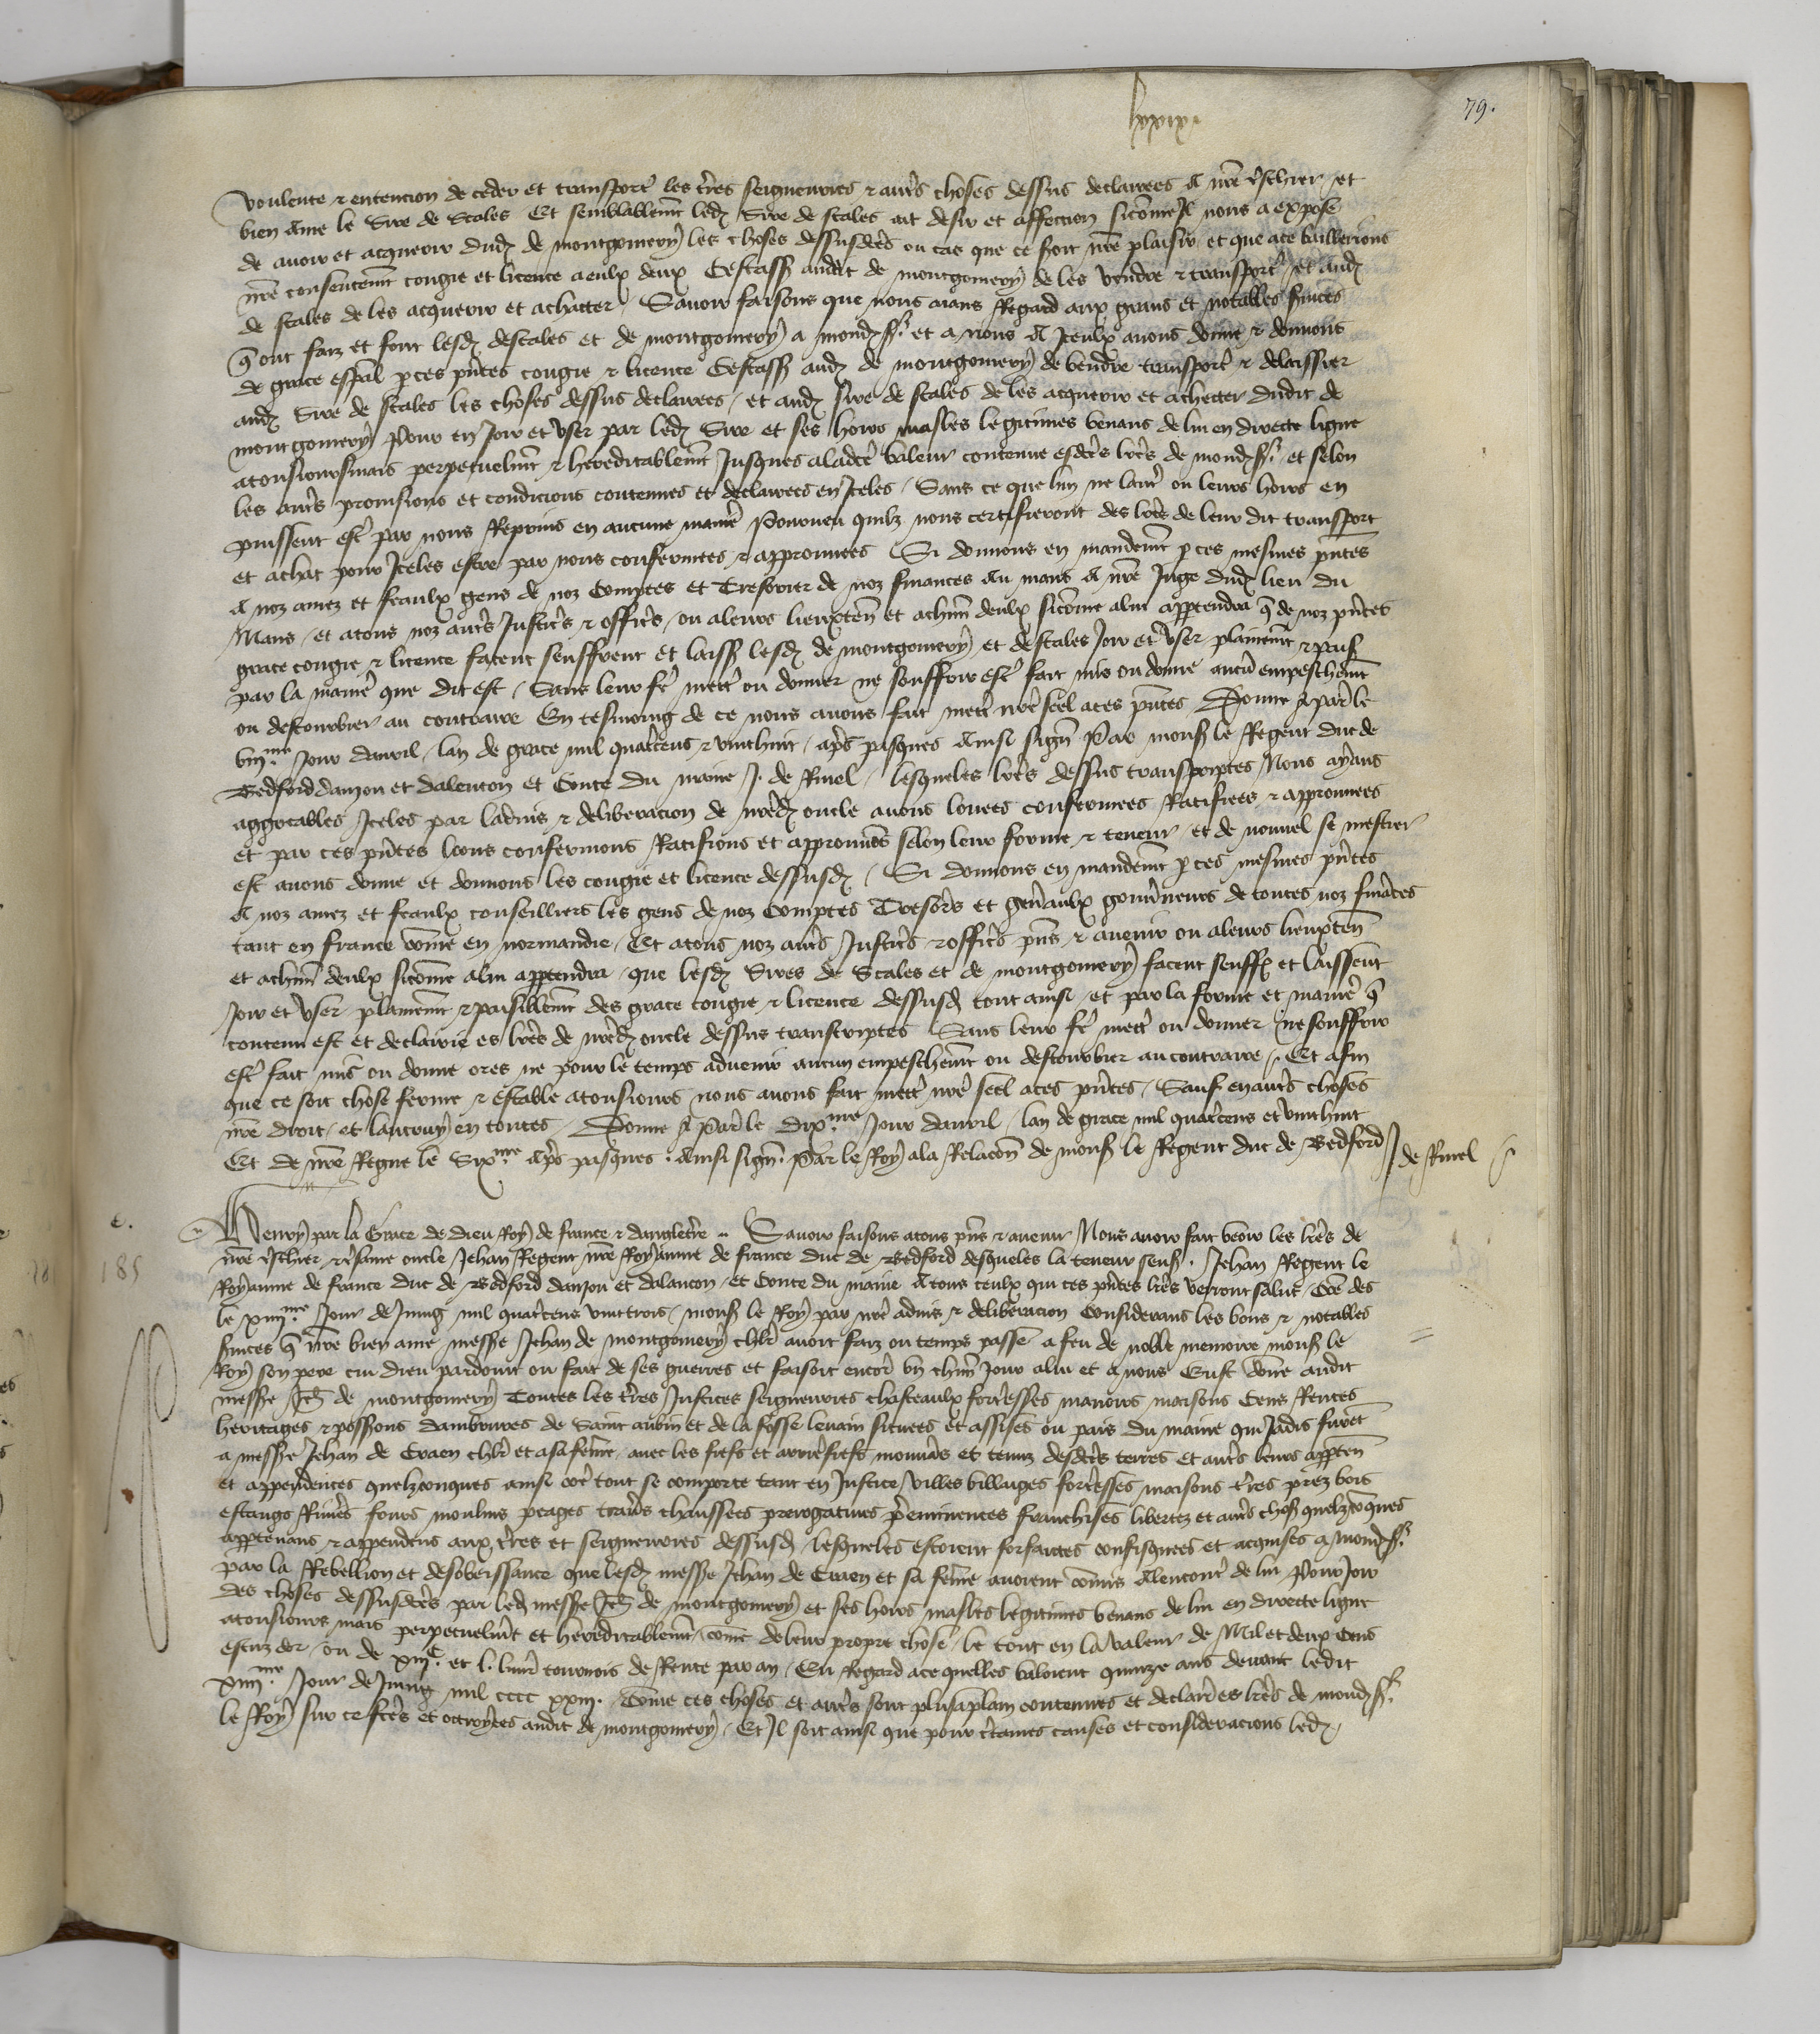 lxxix.
79.
voulente & entencion de ceder et transport' les t'res seigneuries & aut's choses dessus declairees A n're t'schier et
bien Ame le Sire de Scales Et semblablem't led' Sire de scales ait desir et affection sicom'e Jl nous a expose
de auoir et acquerir dud' de montgomery les choses dessusd'tes ou cas que ce soit n're plaisir et que ace baillerions
n're consentem't congie et licence a eulx deux Cestass' audit de montgomery de les vendre & transport' et aud'
de scales de les acquerir et achatter / Sauoir faisons que nous aians Regard aux grans et notables s'uices
q' ont faiz et font lesd' descales et de montgomery a mond' s'r et a nous A Jceulx auons donne & donnons
de grace esp'al p' ces p'ntes congie & licence Cestass' aud' de montgomery de vendre transport' & delaissier
aud' Sire de scales les choses dessus declairees / et aud' sire de scales de les acquerir et achetter dudit de
montgomery Pour en Joir et vser par led' Sire et ses hoirs masles legitimes venans de lui en directe ligne
atousioursmais perpetuelm't & hereditablem't Jusques alad'te valeur contenue esd'tes l'res de mond' s'r / et selon
les aut's prouisions et condicions contenues et declairees en Jceles / Sans ce que lun ne laut' ou leurs hoirs en
puissent est' par nous Reprins en aucune manie' Pourueu quilz nous certifieront des l'res de leur dit transport
et achat pour Jceles estre par nous confermees & approuuees Si donnons en mandem't p' ces mesmes p'ntes
A noz amez et feaulx gens de noz Comptes et Tresorier de noz finances Au mans A n're Juge dud' lieu du
Mans / et atous noz aut's Justic's & offic's / ou aleurs lieuxten' et achun deulx sicom'e alui app'tendra q' de noz p'ntes
grace congie & licence facent seuffrent et laiss' lesd' de montgomery et descales Joir et vser plainem't & pais'
par la manie' que dit est / Sans leur fe' mett' ou donner ne souffrir est' fait mis ou donne aucu' empeschem't
ou destourbier au contraire En tesmoing de ce nous auons fait mett' n're seel aces p'ntes Donne A Par' le
viij.me Jour dauril / lan de grace mil quat'cens & vinthuit / ap's pasques Ainsi sign' Par mons' le Regent duc de
Bedford danjou et dalencon et Conte du maine J. de Rinel / lesqueles l'res dessus transcriptes Nous ayans
aggreables Jceles par laduis & deliberacion de n'red' oncle auons louees confermees Ratifiees & approuuees
et par ces p'ntes loons confermons Ratifions et approuuons selon leur forme & teneur / et de nouuel se mestier
est auons donne et donnons les congie et licence dessusd' / Si donnons en mandem't p' ces mesmes p'ntes
A noz amez et feaulx conseilliers les gens de noz Comptes Tresor's et gen'aulx gouu'neurs de toutes noz fina'ces
tant en france com'e en normandie / Et atous noz aut's Justic's & offic's p'ns & auenir ou aleurs lieuxten'
et achun deulx sicom'e alui app'tendra / que lesd' Sires de Scales et de montgomery facent seuff' et laissent
Joir et vser plainem't & paisiblem't des grace congie & licence dessusd' tout ainsi / et par la forme et manie' q'
contenu est et declairie es l'res de n'red' oncle dessus transcriptes Sans leur fe' mett' ou donner ne souffrir
est' fait mis ou donne ores ne pour le temps aduenir aucun empeschem't ou destourbier au contraire / Et afin
que ce soit chose ferme & estable atousiours nous auons fait mett' n're seel aces p'ntes / Sauf en aut's choses
n're droit / et lautruy en toutes / Donne A Par' le Dix.me Jour dauril / lan de grace mil quat'cens et vinthuit
Et de n're Regne le Six.me Ap's pasques . Ainsi sign' . Par le Roy ala Relac'on de mons' le Regent duc de Bedford J de Rinel
e.
185
Henry par la Grace de dieu Roy de france & dangleter're .. Sauoir faisons atous p'ns & auenir Nous auoir fait veoir les l'res de
n're t'schier & t'same oncle Jehan Regent n're Royaume de france duc de Bedford desqueles la teneur sens' . Jehan Regent le
Royaume de france duc de Bedford danjou et dalancon / et Conte du maine A tous ceulx qui ces p'ntes l'res verront salut / Com'e des
le xiiij.me Jour de Juing mil quat'cens vinttrois / mons' le Roy par n're aduis & deliberacion Considerans les bons & notables
s'uices q' n're bien ame mess'e Jehan de montgomery ch'lr auoit faiz ou temps passe a feu de noble memoire mons' le
Roy son pere cui dieu pardonit ou fait de ses guerres et faisoit encor' vn ch'un Jour alui et a nous Eust donne audit
mess'e Jeh' de montgomery Toutes les t'res Justices seigneuries chasteaulx fort'resses manoirs maisons Cens Rentes
heritages & poss'ions dambrieres de Saint aubin et de la fosse leuain situees et assises ou pais du maine qui Jadis furet
a mess'e Jehan de Craen ch'lr et asa fem'e / auec les fiefs et arrie'fiefs mouua's et tenuz desd'tes terres et aut's leurs app'ten'
et appendences quelzconques ainsi co'e tout se comporte tant en Justice / villes villaiges fort'resses maisons t'res prez bois
estangs Riuie's fours moulins peages trau's chaussees prerogatiues p'eminences franchises libertez et aut's chos' quelzco'ques
app'tenans & appendens aux t'res et seigneuries dessusd' / lesqueles estoient forfaictes confisquees et acquises a mond' s'r
par la Rebellion et desobeissance que lesd' mess'e Jehan de Craen et sa fem'e auoient co'mis Alencont' de lui Pour Joir
des choses dessusd'tes par led' mess'e Jeh' de montgomery et ses hoirs masles legitimes venans de lui en directe ligne
atousiours mais perpetuelm't et hereditablem't / com'e de leur propre chose / le tout en la valeur de Mil et deux Cens
escuz dor / ou de xiijC. et l. liur' tournois de Rente par an / Eu Regard ace quelles valoient quinze ans deuant ledit
xiiij.me Jour de Juing mil cccc xxiij. Com'e ces choses et aut's sont plus aplain contenues et declair' es l'res de mond' s'r
le Roy sur ce f'ctes et octroyees audit de montgomery / Et Jl soit ainsi que pour c'taines causes et consideracions led' /